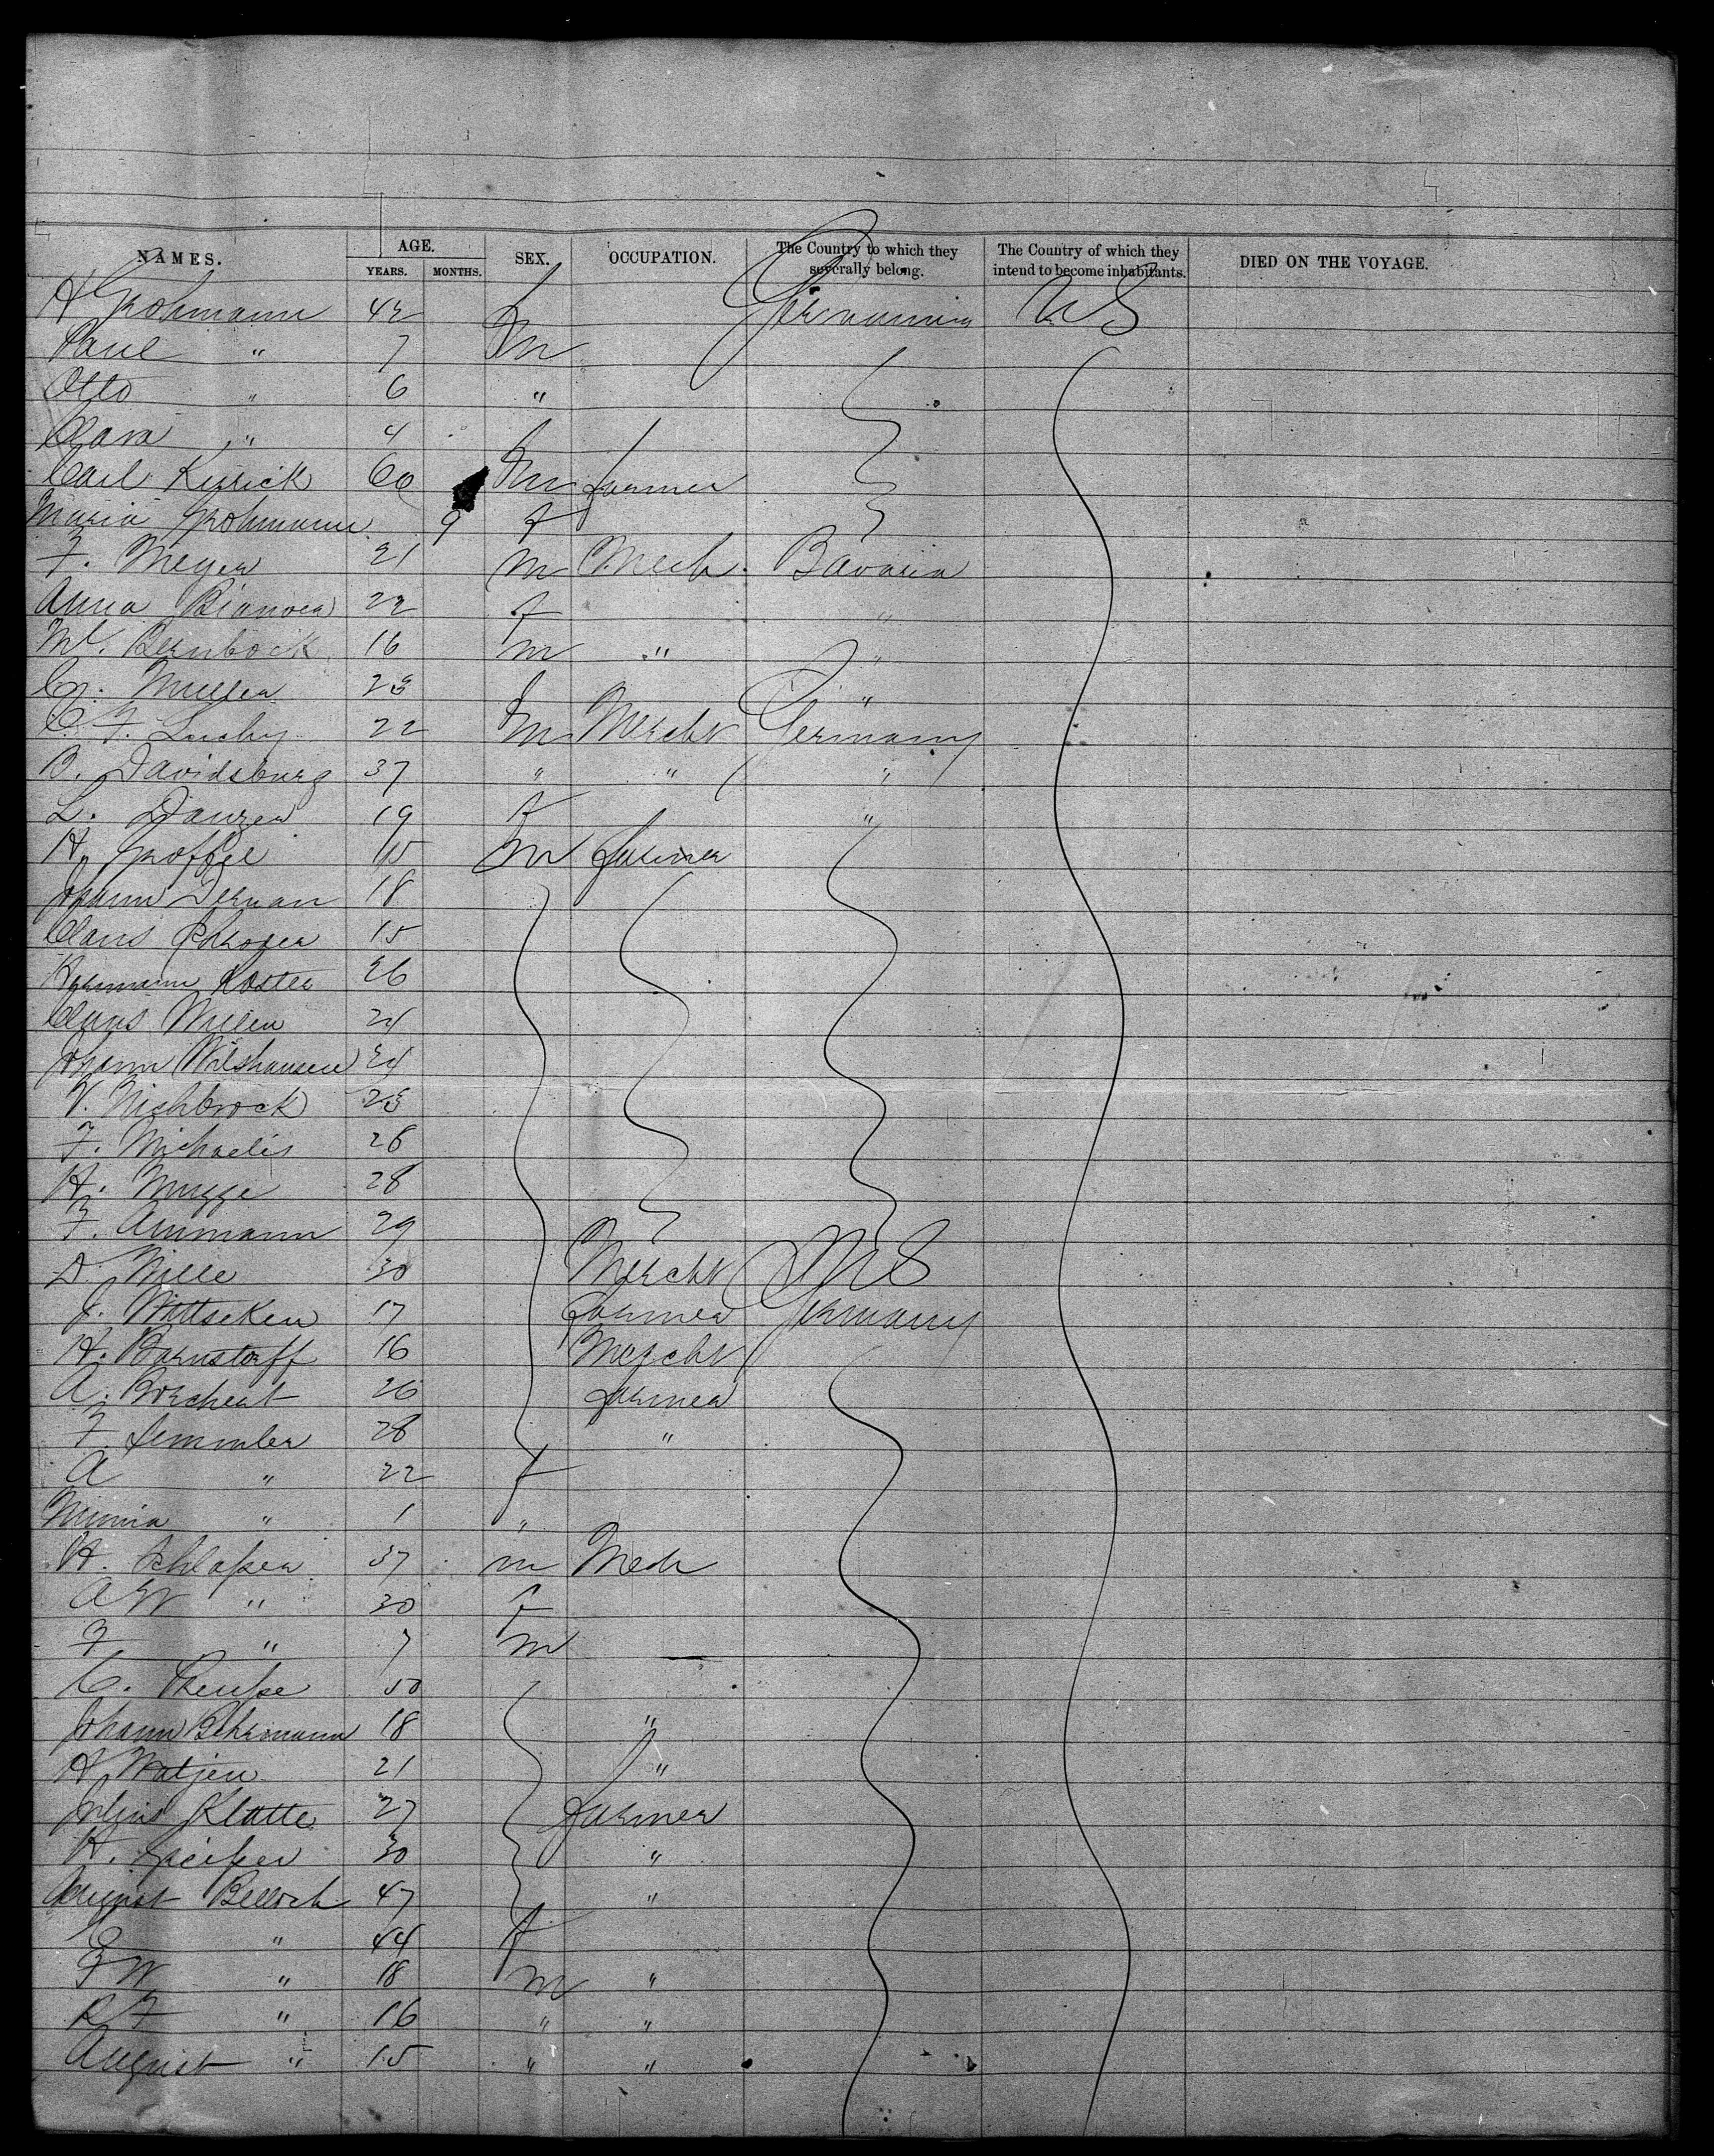 NAMES. AGE. YEARS. MONTHS. SEX. OCCUPATION. The Country to which they severally belong. The Country of which they intend to become inhabitants. DIED ON THE VOYAGE.
H Grohmann 42 f Germany US
Paul " 7 m
Otto " 6 "
Clara " 4 f
Carl Kirrick 60 m Farmer
Maria Grohmann 9 f
F. Meyer 21 m Mech. Bavaria
Anna 22 f "
Bernbock 16 m " "
Muller 23 f "
C. F. Luchy 22 m Mercht Germany
B. Davidsburg 37 " " "
L. Danzer 19 f "
H. Groffel 15 m Farmer
Johann 18
Claus 15
Hermann Koster 26
Claus 24
Johann Wilshausen 24
V. Nichbrock 23
F. Michaelis 28
H. Mugge 28
F. Ammann 29
D. Wille 30 Mercht US
J. Wittseken 17 Farmer Germany
H. Barnstorff 16 Mercht
A. Borchert 26 Farmer
F. Semmler 28 "
A " 22 f
Minna " 1 "
H. 37 m Mech
A W " 30 f
F " 7 m —
C. 50
Johann Behrmann 18 "
H Watjen 21 "
Julius Klatte 27 Farmer
H. 30 "
August Belloch 47 "
E " 44 f
F W " 18 m "
R F " 16 " "
August " 15 " "